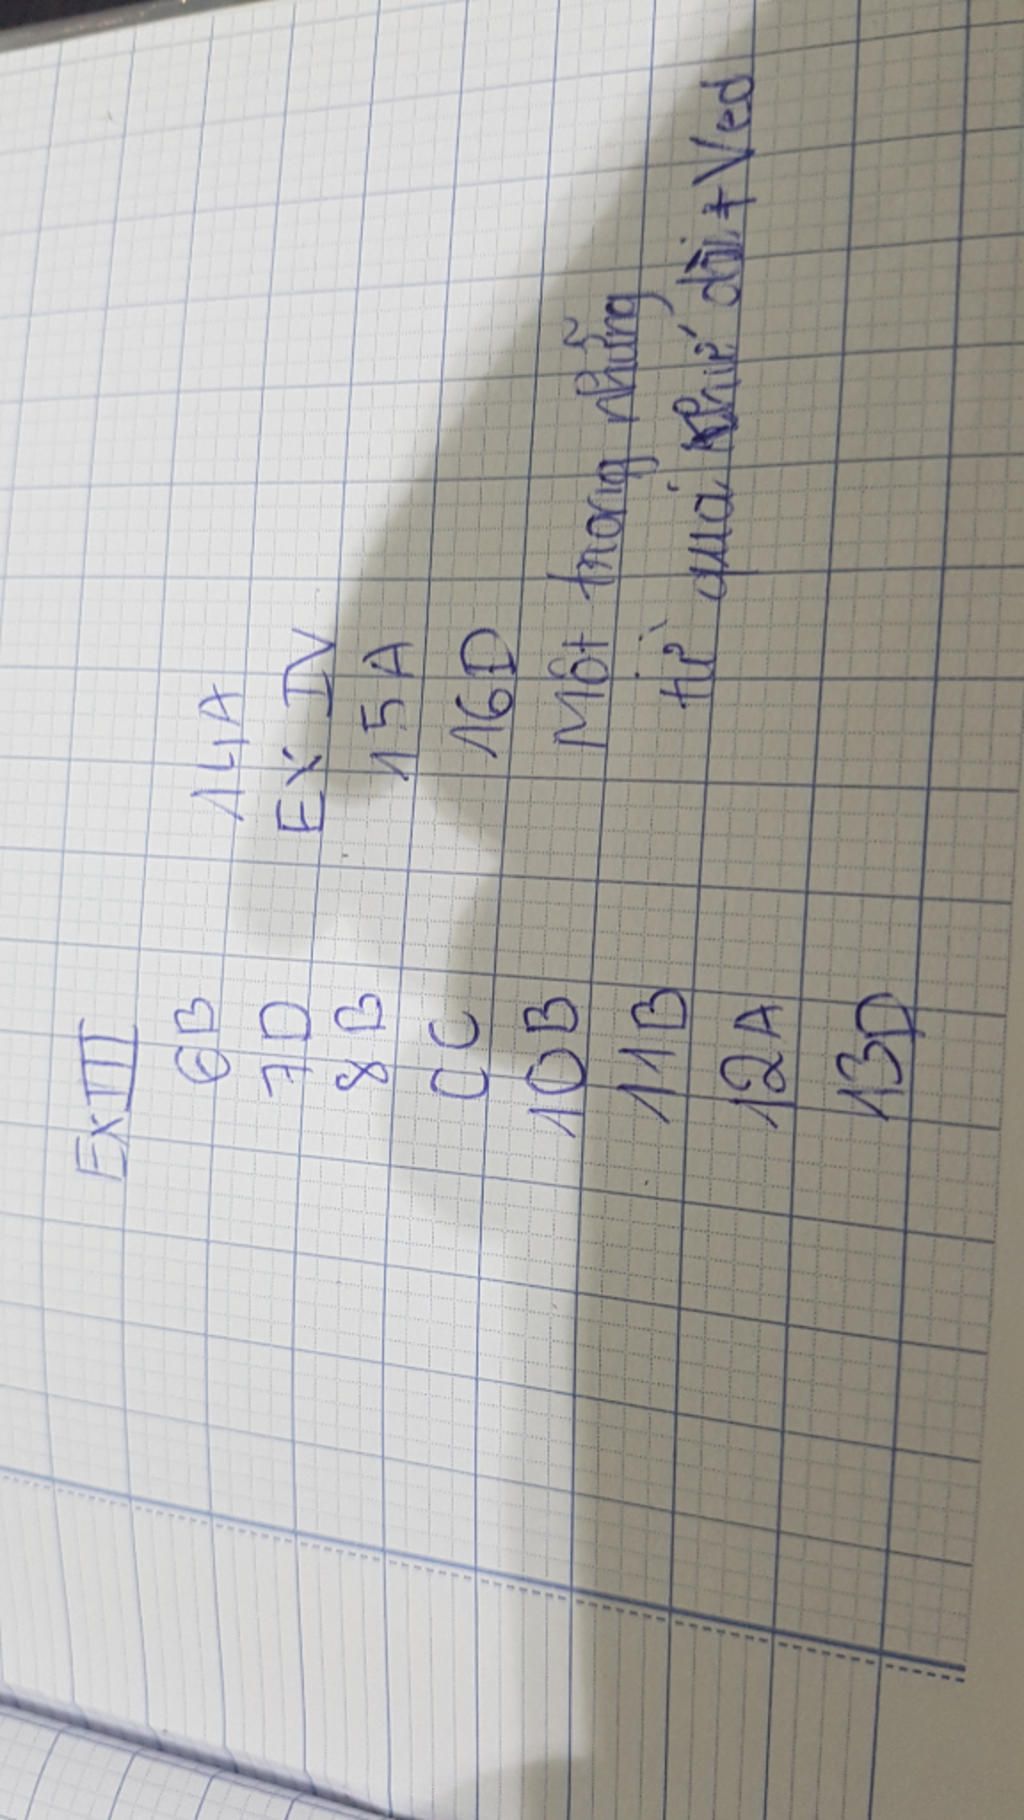 Ex III
6B
7D
8B
CC
10B
11B
12A
13D
14A
Ex IV
15A
16D
Một trong những
từ quá khứ dài + Ved